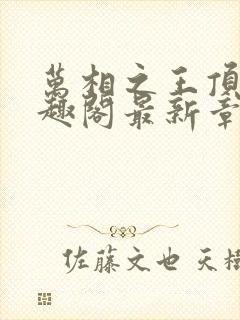 萬相之王頂
趣閣最新章
佐藤文也 天樹